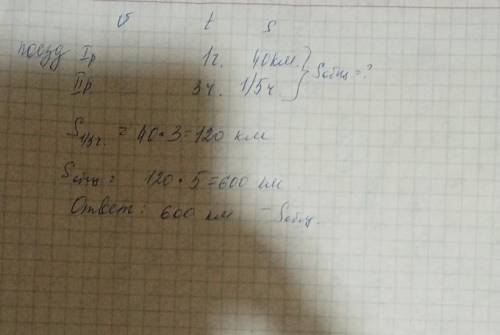 v t s
поезд Iр 1ч. 40км. } Sобщ = ?
IIр 3ч. 1/5ч
S1/5ч. = 40 · 3 = 120 км
Sобщ = 120 · 5 = 600 км
Ответ: 600 км - Sобщ.